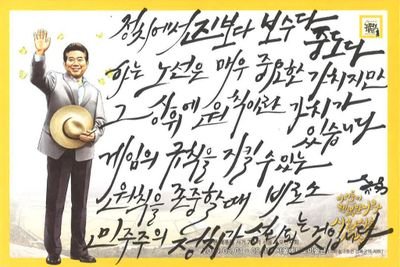 정치에서 진보다 보수다 중도다
하는 노선은 매우 중요한 가치지만
그 상위에 원칙이란 가치가
있습니다
게임의 규칙을 지킬 수 있는
원칙을 존중할 때 비로소
민주주의 정치가 성립되는 것입니다